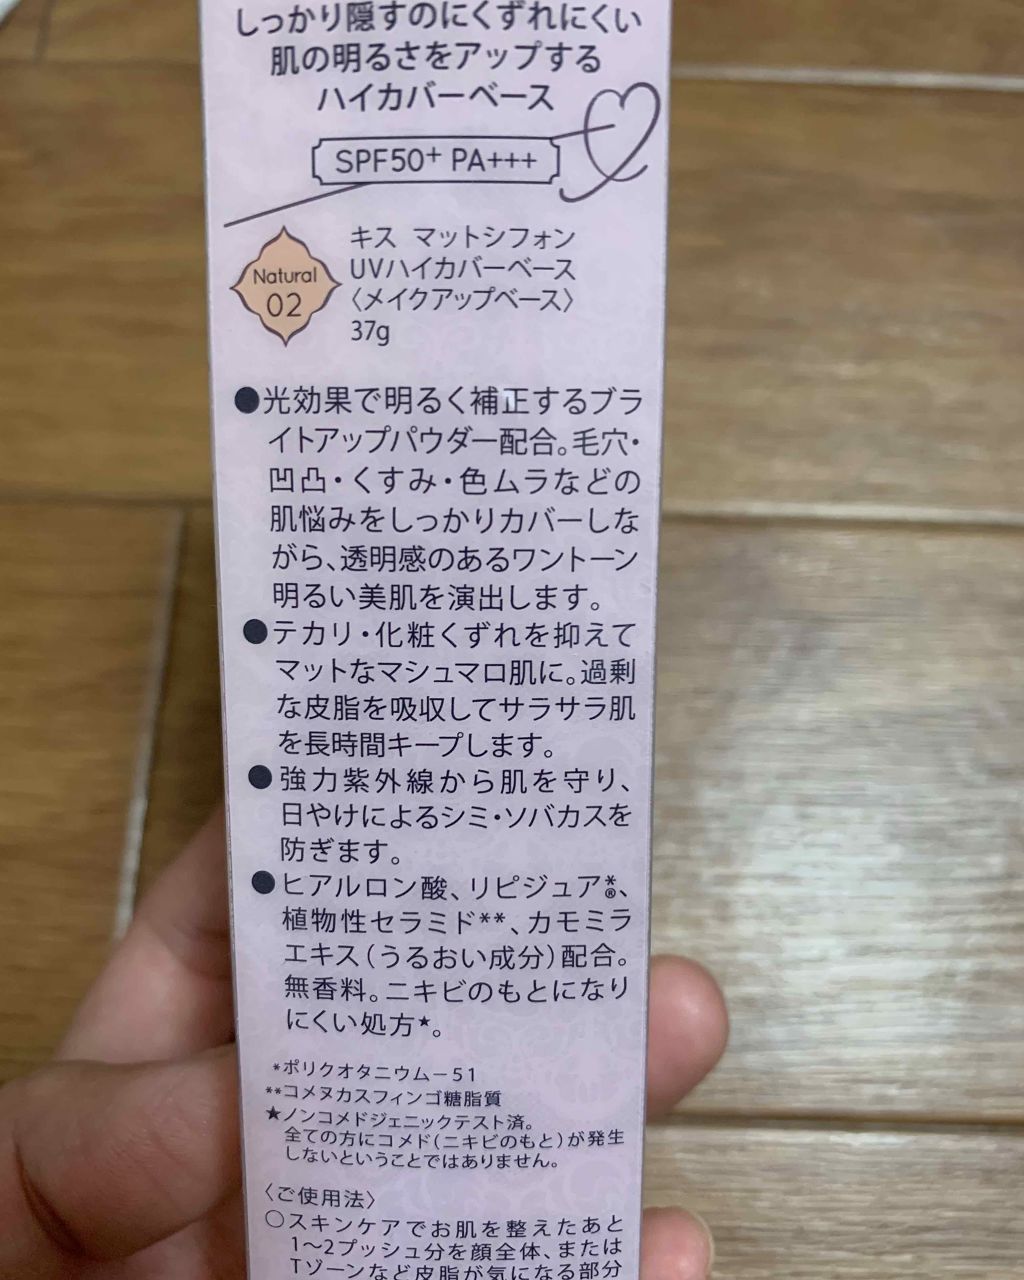 しっかり隠すのにくずれにくい
肌の明るさをアップする
ハイカバーベース
SPF50+ PA+++
Natural
02
キス マットシフォン
UVハイカバーベース
〈メイクアップベース〉
37g
●光効果で明るく補正するブラ
イトアップパウダー配合。毛穴・
凹凸・くすみ・色ムラなどの
肌悩みをしっかりカバーしな
がら、透明感のあるワントーン
明るい美肌を演出します。
●テカリ・化粧くずれを抑えて
マットなマシュマロ肌に。過剰
な皮脂を吸収してサラサラ肌
を長時間キープします。
●強力紫外線から肌を守り、
日やけによるシミ・ソバカスを
防ぎます。
●ヒアルロン酸、リピジュア®*、
植物性セラミド**、カモミラ
エキス(うるおい成分)配合。
無香料。ニキビのもとになり
にくい処方★。
*ポリクオタニウム−51
**コメヌカスフィンゴ糖脂質
★ノンコメドジェニックテスト済。
全ての方にコメド(ニキビのもと)が発生
しないということではありません。
〈ご使用法〉
○スキンケアでお肌を整えたあと
1〜2プッシュ分を顔全体、または
Tゾーンなど皮脂が気になる部分